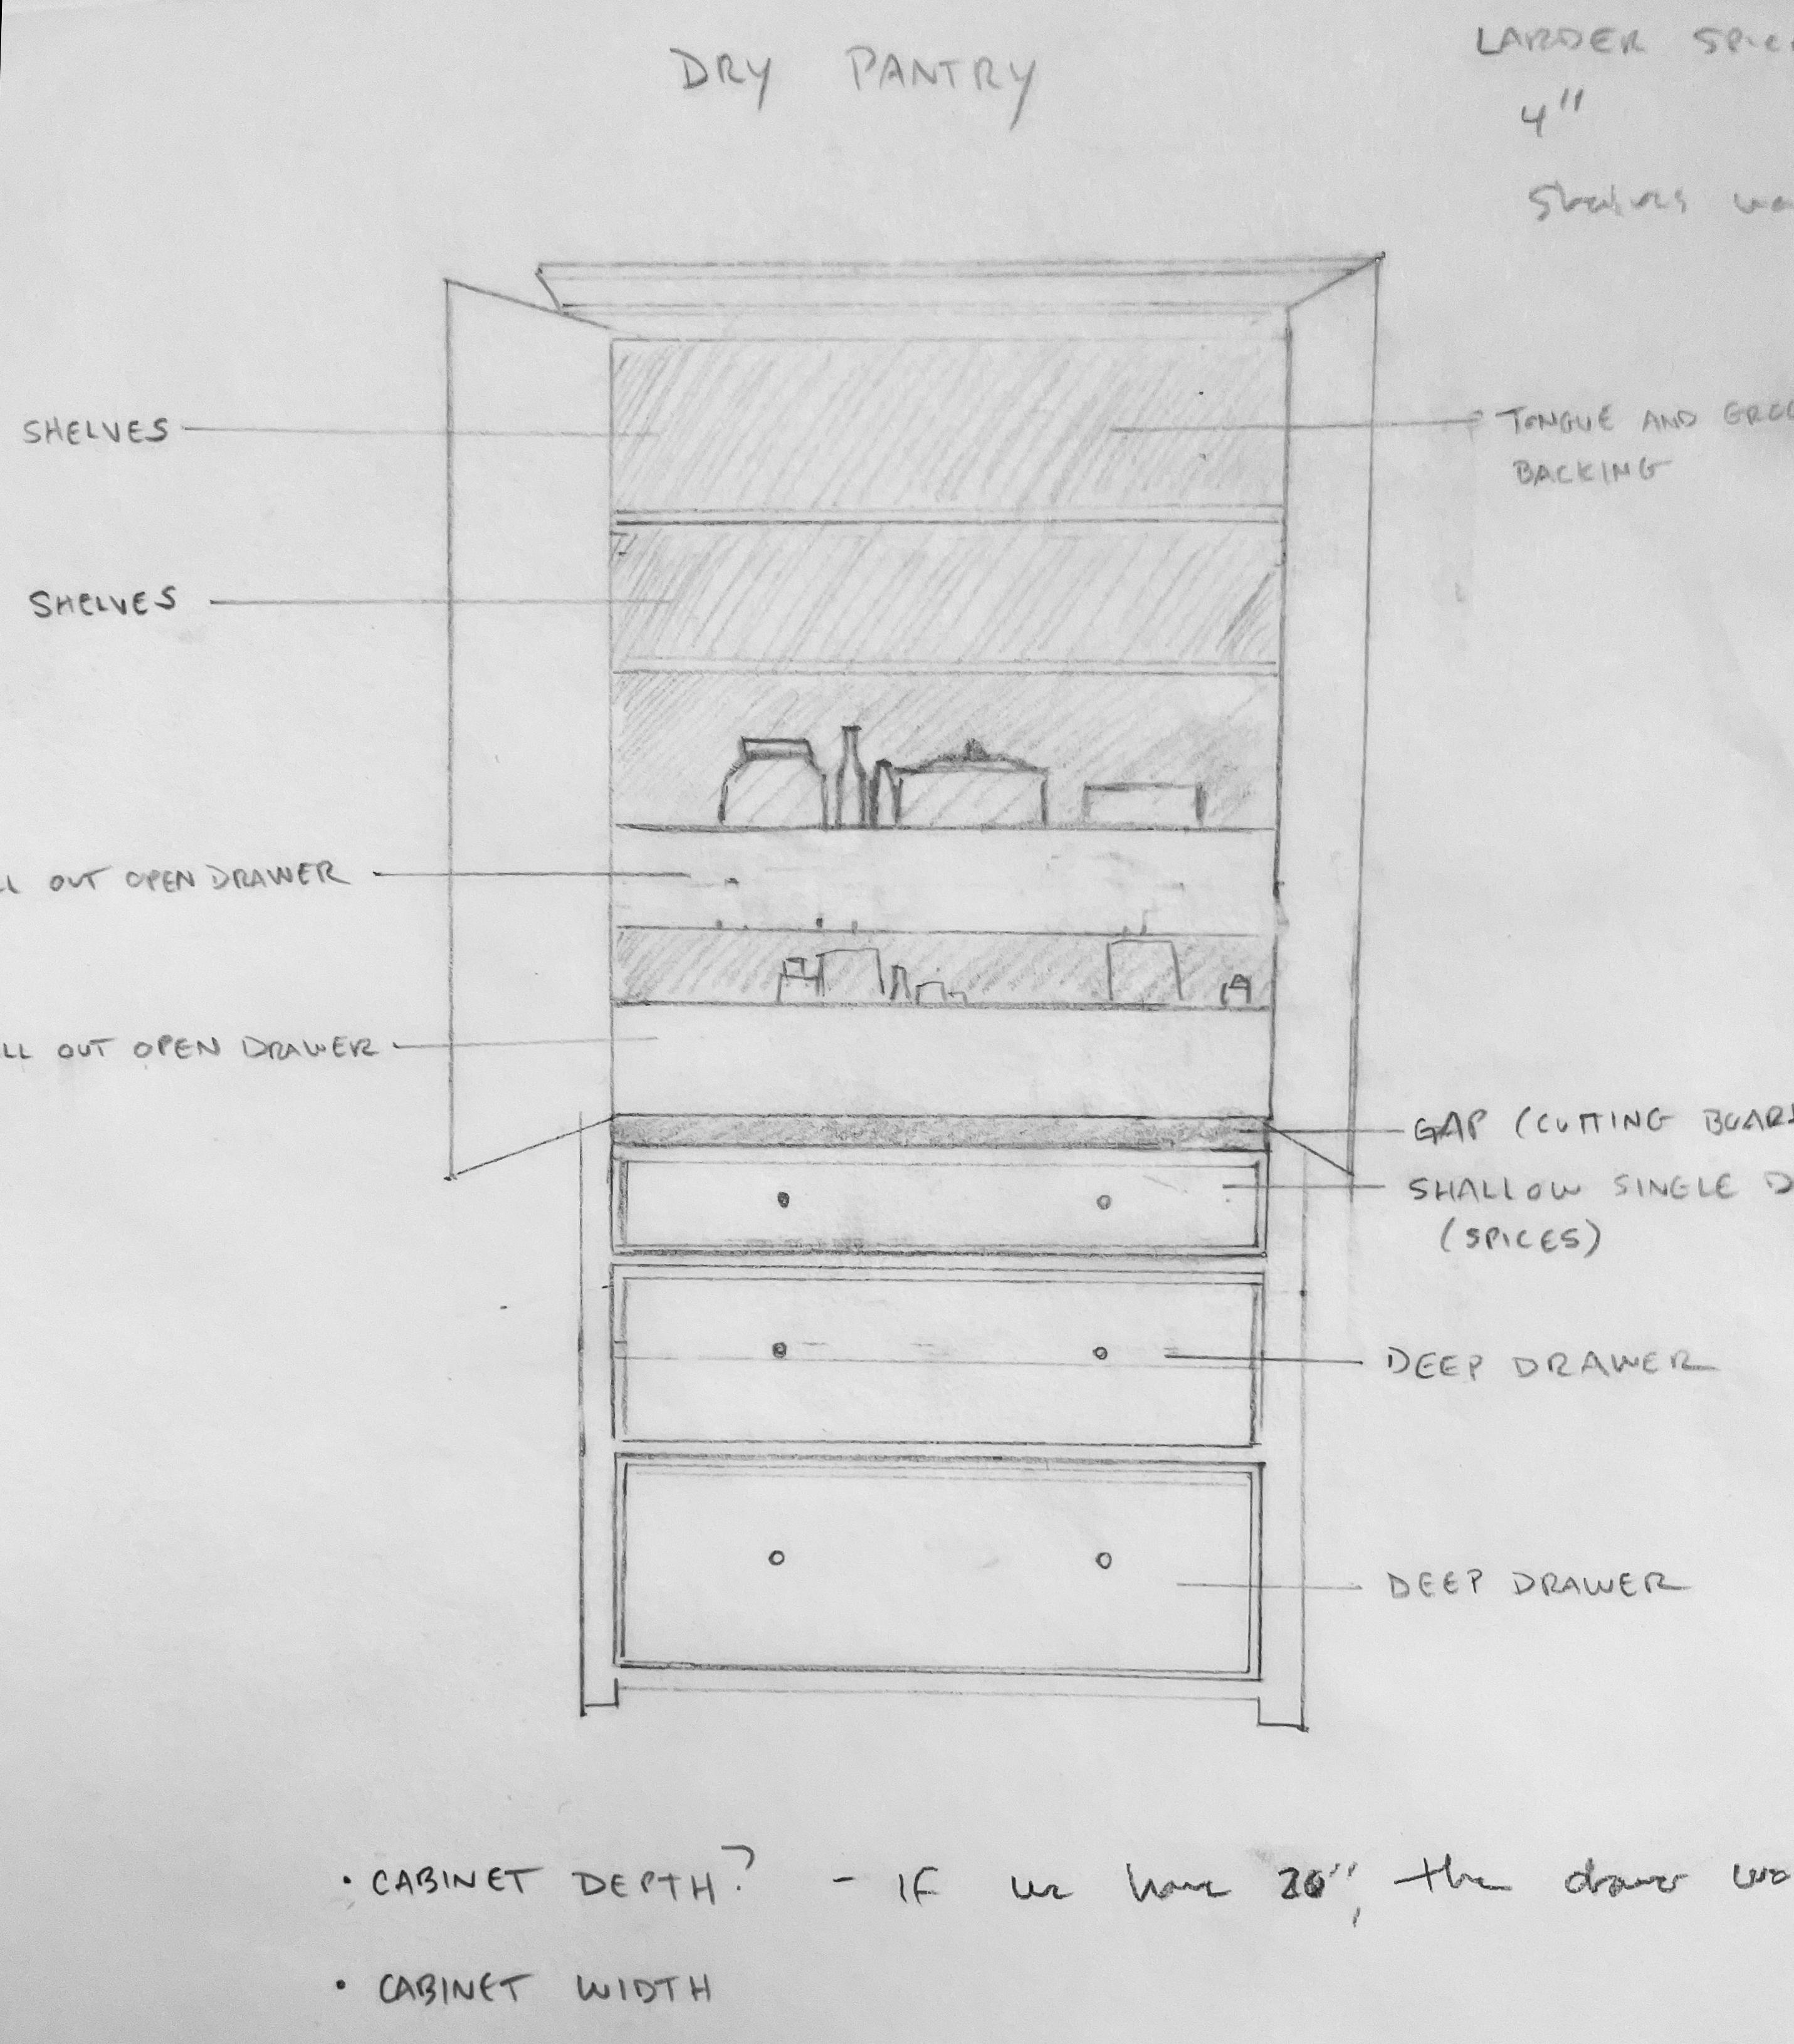 DRY PANTRY
LARDER
4"
SHELVES
TONGUE AND
BACKING
SHELVES
OUT OPEN DRAWER
OUT OPEN DRAWER
GAP (CUTTING
SHALLOW SINGLE
(SPICES)
DEEP DRAWER
DEEP DRAWER
• CABINET DEPTH? - IF we have 20", the drawer
• CABINET WIDTH